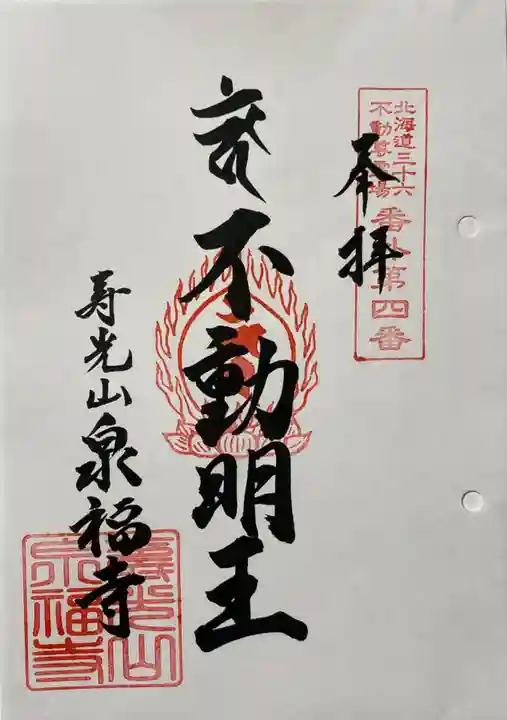 北海道三十六
不動尊霊場
番外第四番
奉拝
不動明王
寿光山泉福寺
壽光山
泉福寺